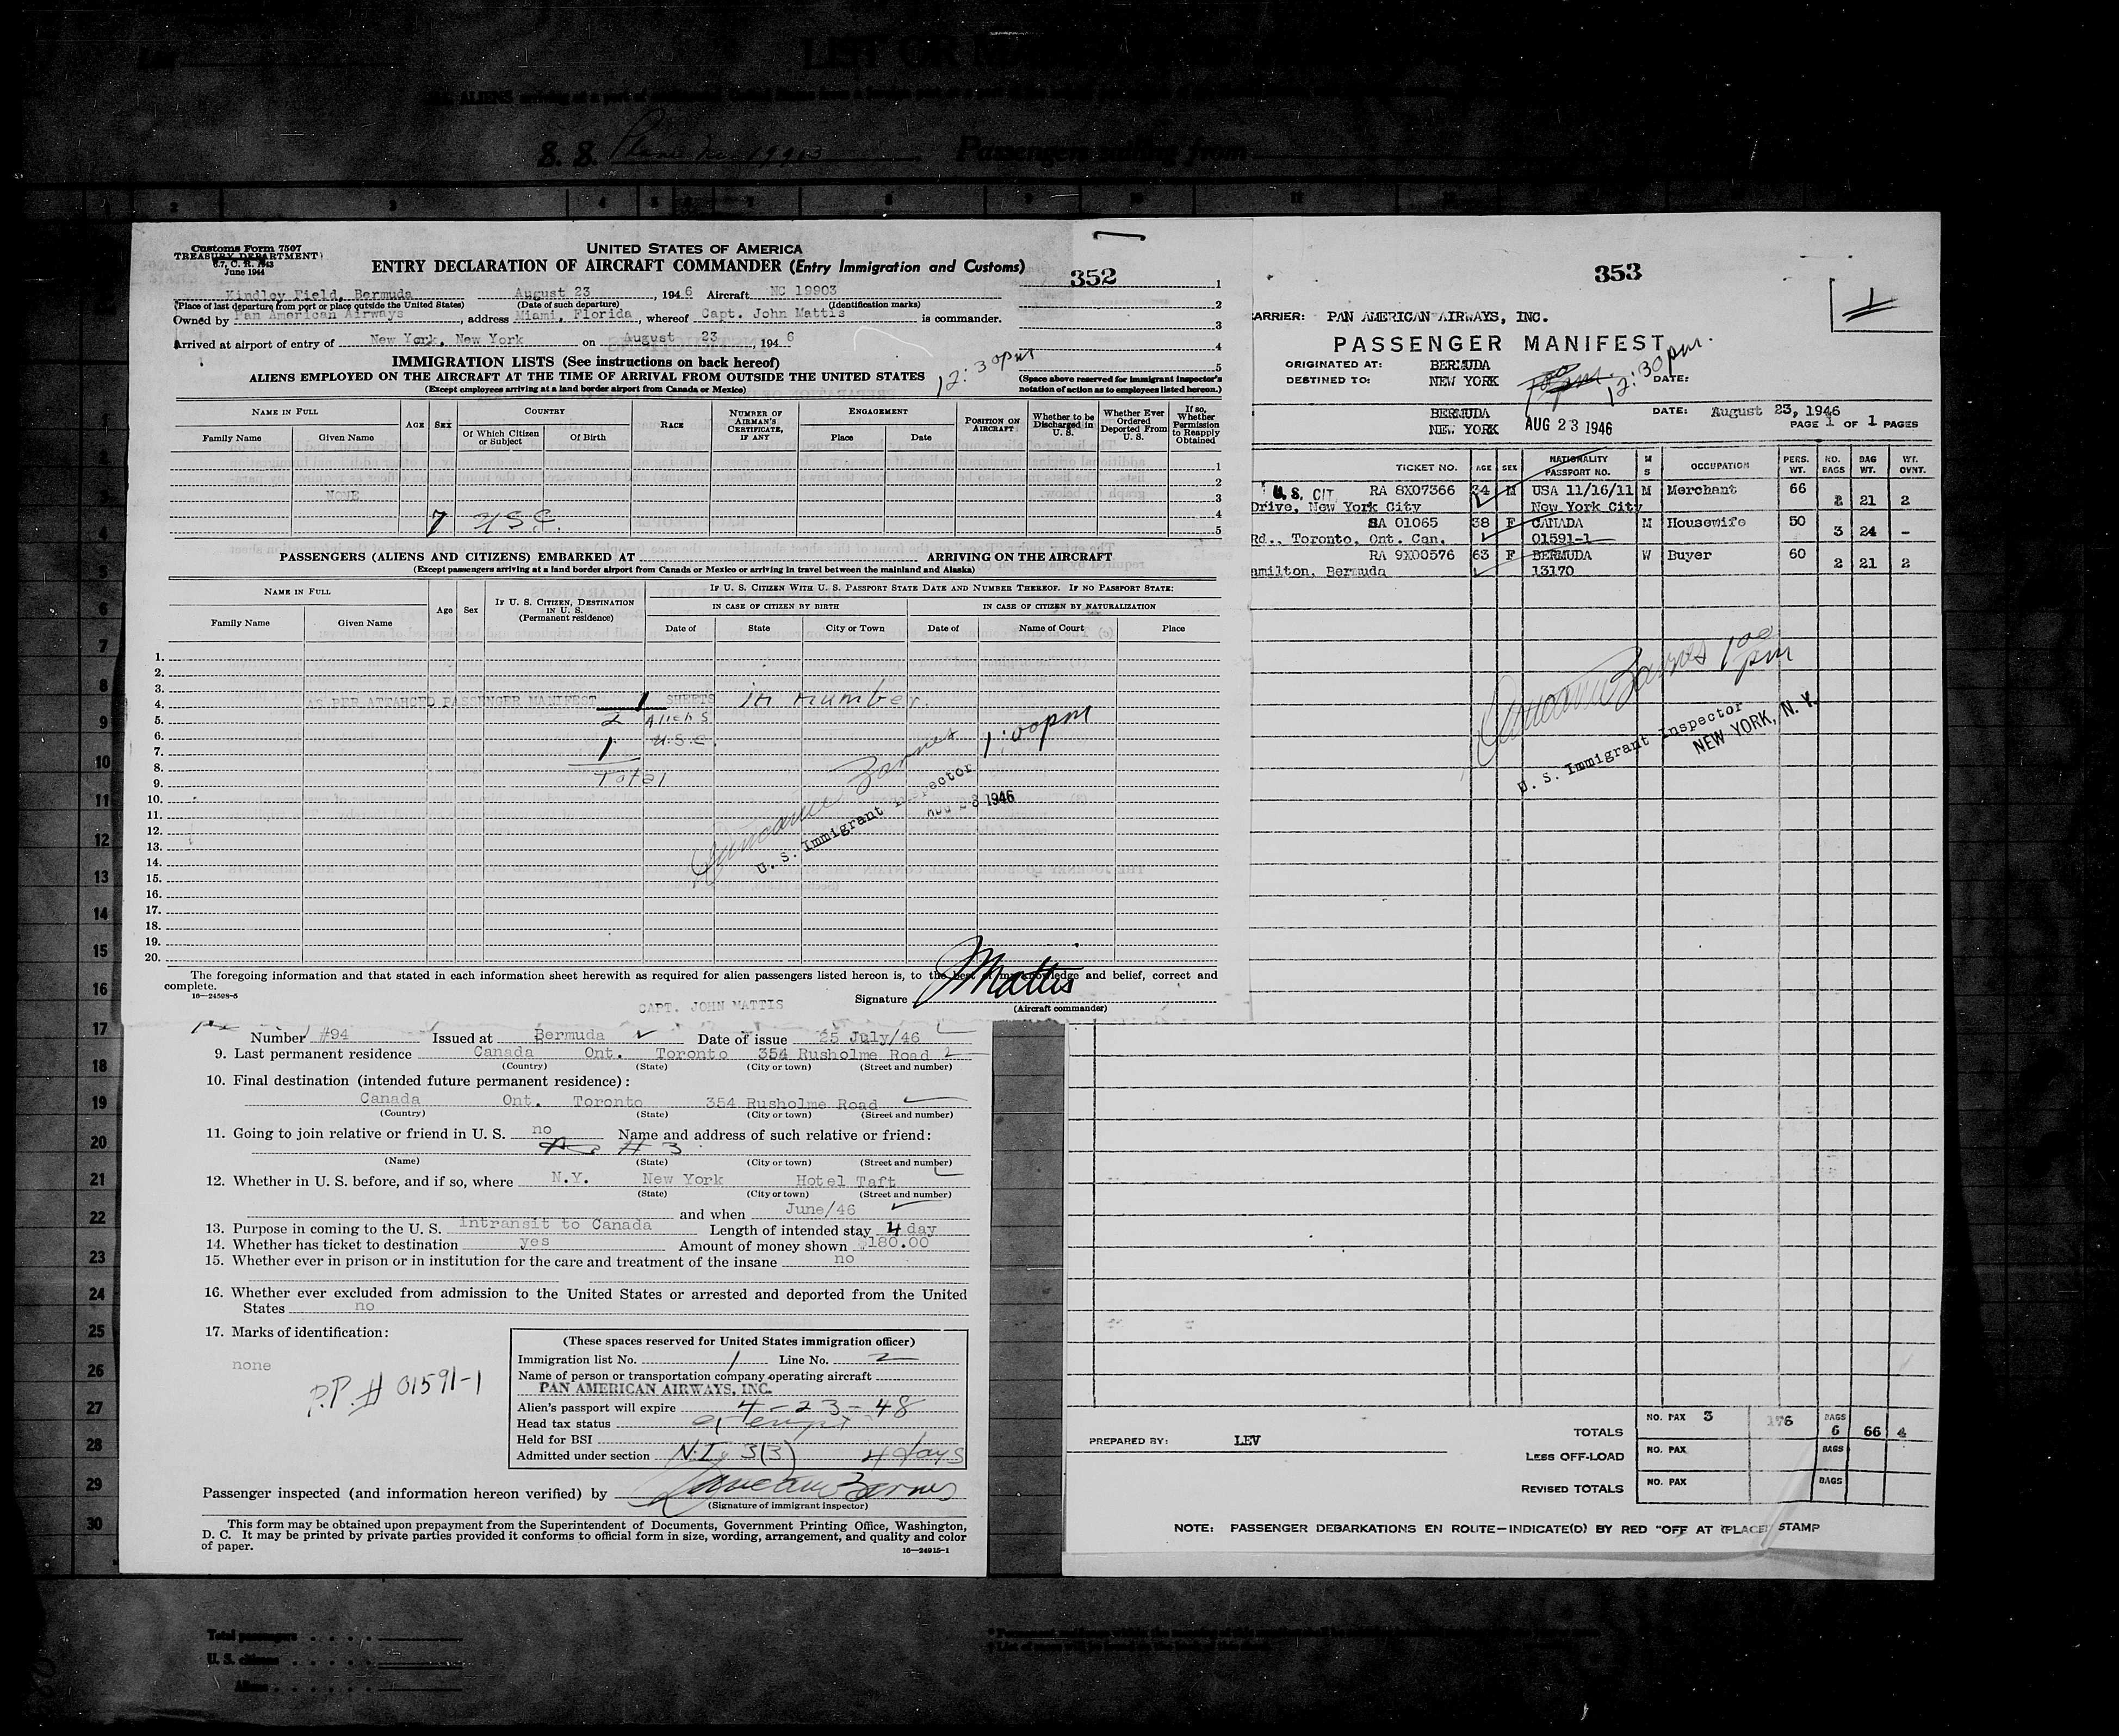 LIST OR
ALIENS arriving at a port of
S. S. Plane No. 19903 Passengers sailing from
Customs Form 7507
TREASURY DEPARTMENT
June 1944
UNITED STATES OF AMERICA
ENTRY DECLARATION OF AIRCRAFT COMMANDER (Entry Immigration and Customs)
352
Kindley Field, Bermuda August 23, 1946 Aircraft NC 19903
(Place of last departure from port or place outside the United States) (Date of such departure) (Identification marks)
Owned by Pan American Airways, address Miami, Florida, whereof Capt. John Mattis is commander.
Arrived at airport of entry of New York, New York on August 23, 1946
1
2
3
4
5
IMMIGRATION LISTS (See instructions on back hereof)
ALIENS EMPLOYED ON THE AIRCRAFT AT THE TIME OF ARRIVAL FROM OUTSIDE THE UNITED STATES
12:30pm
(Except employees arriving at a land border airport from Canada or Mexico)
(Space above reserved for immigrant inspector's notation of action as to employees listed hereon.)
NAME IN FULL
Family Name Given Name
AGE SEX
COUNTRY
Of Which Citizen or Subject Of Birth
RACE
NUMBER OF AIRMAN'S CERTIFICATE, IF ANY
ENGAGEMENT
Place Date
POSITION ON AIRCRAFT
Whether to be Discharged in U. S.
Whether Ever Ordered Deported From U. S.
If so, Whether Permission to Reapply Obtained
1
2
NONE 3
4
7 USC. 5
PASSENGERS (ALIENS AND CITIZENS) EMBARKED AT ARRIVING ON THE AIRCRAFT
(Except passengers arriving at a land border airport from Canada or Mexico or arriving in travel between the mainland and Alaska)
NAME IN FULL
Family Name Given Name
Age Sex
IF U. S. CITIZEN, DESTINATION IN U. S.
(Permanent residence)
IF U. S. CITIZEN WITH U. S. PASSPORT STATE DATE AND NUMBER THEREOF. IF NO PASSPORT STATE:
IN CASE OF CITIZEN BY BIRTH IN CASE OF CITIZEN BY NATURALIZATION
Date of State City or Town Date of Name of Court Place
1.
2.
3.
4. AS PER ATTAHCED PASSENGER MANIFEST 1 SHEETS in number
5. 2 Aliens
6. U.S.C.
7. 1
8. Total
9.
10.
11.
12.
13.
14.
15.
16.
17.
18.
19.
20.
Barnes 1:00pm
U. S. Immigrant Inspector
AUG 23 1946
The foregoing information and that stated in each information sheet herewith as required for alien passengers listed hereon is, to the best of my knowledge and belief, correct and
complete.
16—24598-5
CAPT. JOHN MATTIS Signature JMattis
(Aircraft commander)
Number #94 Issued at Bermuda Date of issue 25 July/46
9. Last permanent residence Canada Ont. Toronto 354 Rusholme Road
(Country) (State) (City or town) (Street and number)
10. Final destination (intended future permanent residence):
Canada Ont. Toronto 354 Rusholme Road
(Country) (State) (City or town) (Street and number)
11. Going to join relative or friend in U. S. no Name and address of such relative or friend:
# 3
(Name) (State) (City or town) (Street and number)
12. Whether in U. S. before, and if so, where N.Y. New York Hotel Taft
(State) (City or town) (Street and number)
and when June/46
13. Purpose in coming to the U. S. Intransit to Canada Length of intended stay 4 day
14. Whether has ticket to destination yes Amount of money shown $180.00
15. Whether ever in prison or in institution for the care and treatment of the insane no
16. Whether ever excluded from admission to the United States or arrested and deported from the United
States no
17. Marks of identification:
none
P.P. # 01591-1
(These spaces reserved for United States immigration officer)
Immigration list No. 1 Line No. 2
Name of person or transportation company operating aircraft
PAN AMERICAN AIRWAYS, INC.
Alien's passport will expire 4-23-48
Head tax status exempt
Held for BSI
Admitted under section N.I. 3(3) 4 days
Passenger inspected (and information hereon verified) by
(Signature of immigrant inspector)
This form may be obtained upon prepayment from the Superintendent of Documents, Government Printing Office, Washington,
D. C. It may be printed by private parties provided it conforms to official form in size, wording, arrangement, and quality and color
of paper.
16—24915-1
353
1
ARRIER: PAN AMERICAN AIRWAYS, INC.
PASSENGER MANIFEST
ORIGINATED AT: BERMUDA
DESTINED TO: NEW YORK 12:30pm. DATE:
BERMUDA DATE: August 23, 1946
NEW YORK AUG 23 1946 PAGE 1 OF 1 PAGES
TICKET NO. AGE SEX NATIONALITY PASSPORT NO. M S OCCUPATION PERS. WT. NO. BAGS BAG WT. WT. OVNT.
U.S. CIT. RA 8X07366 34 M USA 11/16/11 M Merchant 66 21 2
Drive, New York City New York City
SA 01065 38 F CANADA M Housewife 50 3 24 -
Rd., Toronto, Ont. Can. 01591-1
RA 9X00576 63 F BERMUDA W Buyer 60 2 21 2
amilton, Bermuda 13170
Barnes 1 00 pm
U. S. Immigrant Inspector
NEW YORK, N. Y.
PREPARED BY: LEV
TOTALS NO. PAX 3 176 BAGS 6 66 4
LESS OFF-LOAD NO. PAX BAGS
REVISED TOTALS NO. PAX BAGS
NOTE: PASSENGER DEBARKATIONS EN ROUTE—INDICATE(D) BY RED "OFF AT (PLACE)" STAMP
Total passengers
U. S. citizens
Aliens